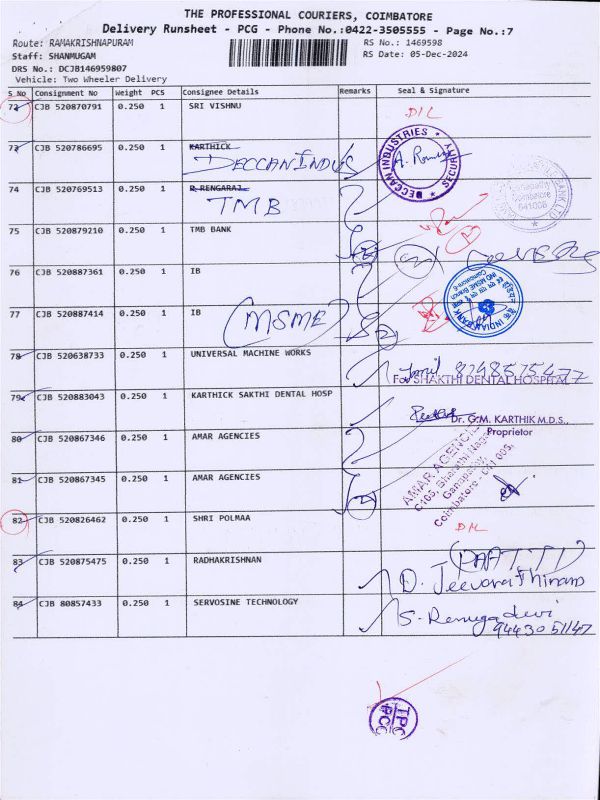 THE PROFESSIONAL COURIERS, COIMBATORE
Delivery Runsheet - PCG - Phone No.:0422-3505555 - Page No.:7
Route: RAMAKRISHNAPURAM
RS No.: 1469598
Staff: SHANMUGAM
RS Date: 05-Dec-2024
DRS No.: DCJB146959807
Vehicle: Two Wheeler Delivery
S No Consignment No Weight PCS Consignee Details Remarks Seal & Signature
72 CJB 520870791 0.250 1 SRI VISHNU
DIL
73 CJB 520786695 0.250 1 KARTHICK
DECCAN INDUS
DECCAN INDUSTRIES
SECURITY
74 CJB 520769513 0.250 1 R.RENGARAJ
TMB
641006
75 CJB 520879210 0.250 1 TMB BANK
76 CJB 520887361 0.250 1 IB
INDIAN BANK
IND MSME Branch
77 CJB 520887414 0.250 1 IB
(MSME)
2
78 CJB 520638733 0.250 1 UNIVERSAL MACHINE WORKS
8248575477
For SHAKTHI DENTAL HOSPITAL
79 CJB 520883043 0.250 1 KARTHICK SAKTHI DENTAL HOSP
Dr. G.M. KARTHIK M.D.S.,
Proprietor
80 CJB 520867346 0.250 1 AMAR AGENCIES
AMAR AGENCIES
C105, Bharathi Nagar
Ganapathy,
Coimbatore - 641 006.
81 CJB 520867345 0.250 1 AMAR AGENCIES
82 CJB 520826462 0.250 1 SHRI POLMAA
DIL
83 CJB 520875475 0.250 1 RADHAKRISHNAN
(PAATTI)
D. Jeevarathinam
84 CJB 80857433 0.250 1 SERVOSINE TECHNOLOGY
S. Renuga devi
9443051147
TPC
PC